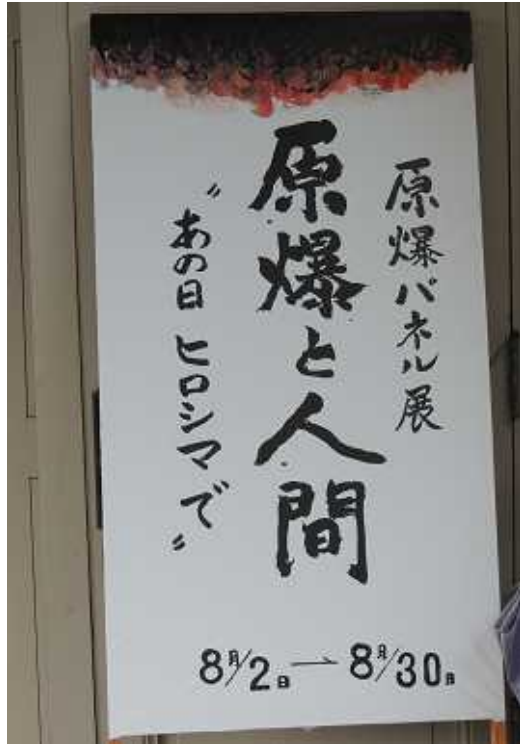 原爆パネル展
原爆と人間
〝あの日 ヒロシマで〟
8月/2日→8月/30日